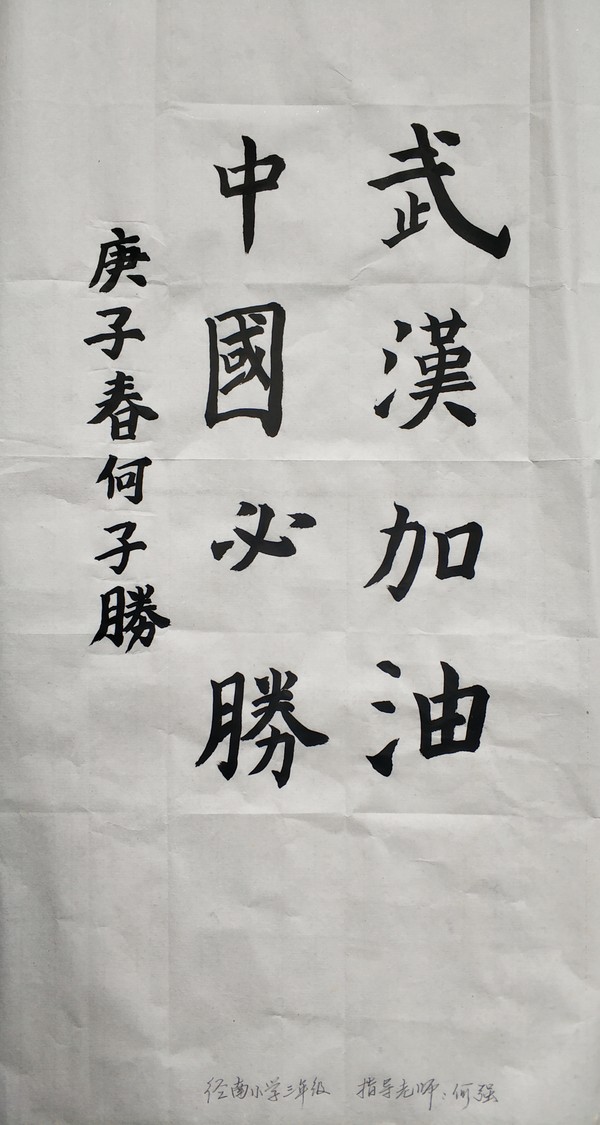 武漢加油
中國必勝
庚子春何子勝
径南小学三年级 指导老师：何强